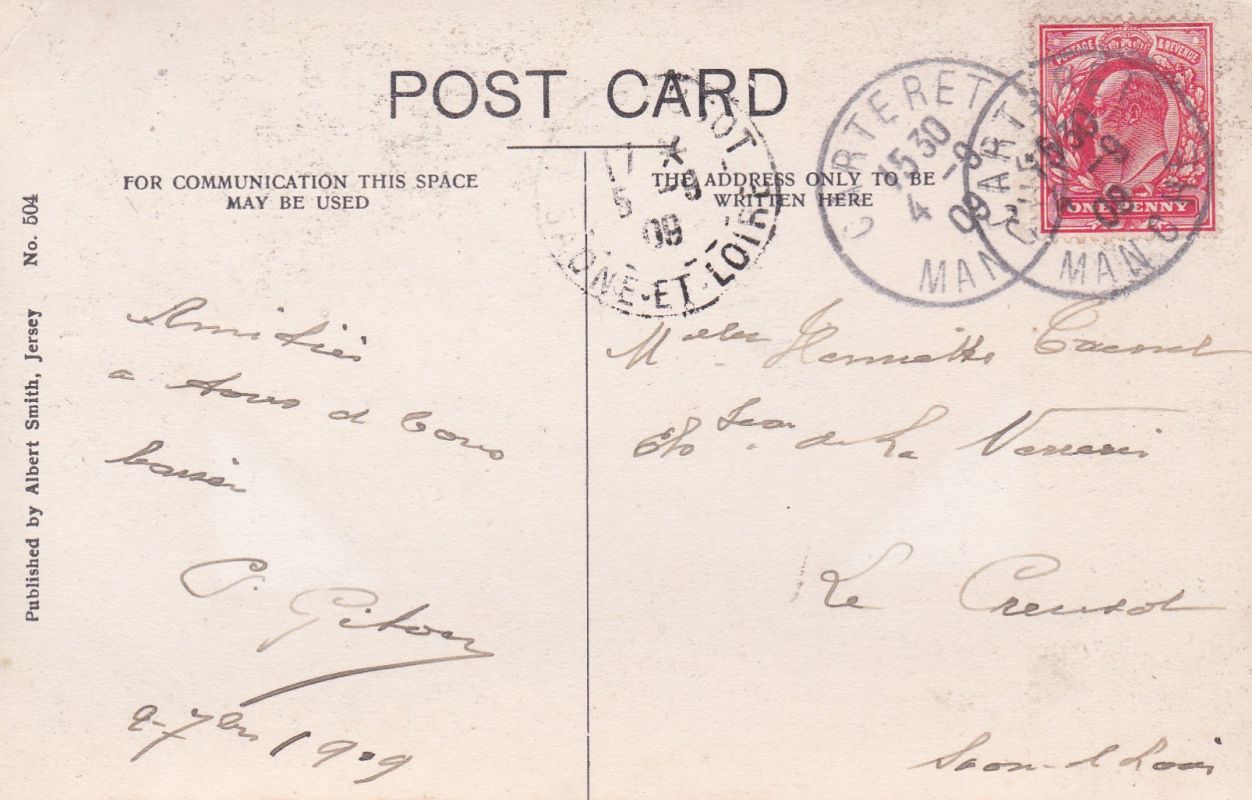 POST CARD
FOR COMMUNICATION THIS SPACE
MAY BE USED
THE ADDRESS ONLY TO BE
WRITTEN HERE
Published by Albert Smith, Jersey No. 504
POSTAGE & REVENUE
ONE PENNY
CARTERET
15 30
4 -9
09
MANCHE
CARTERET
15 30
4 -9
09
MANCHE
SAONE-ET-LOIRE
17 *
5 -9
09
Amitiés
a tous et bons
baisers
P. Giton
2 - 7bre 1909
Melle Henriette
de La Verrerie
Le Creusot
Saone et Loire